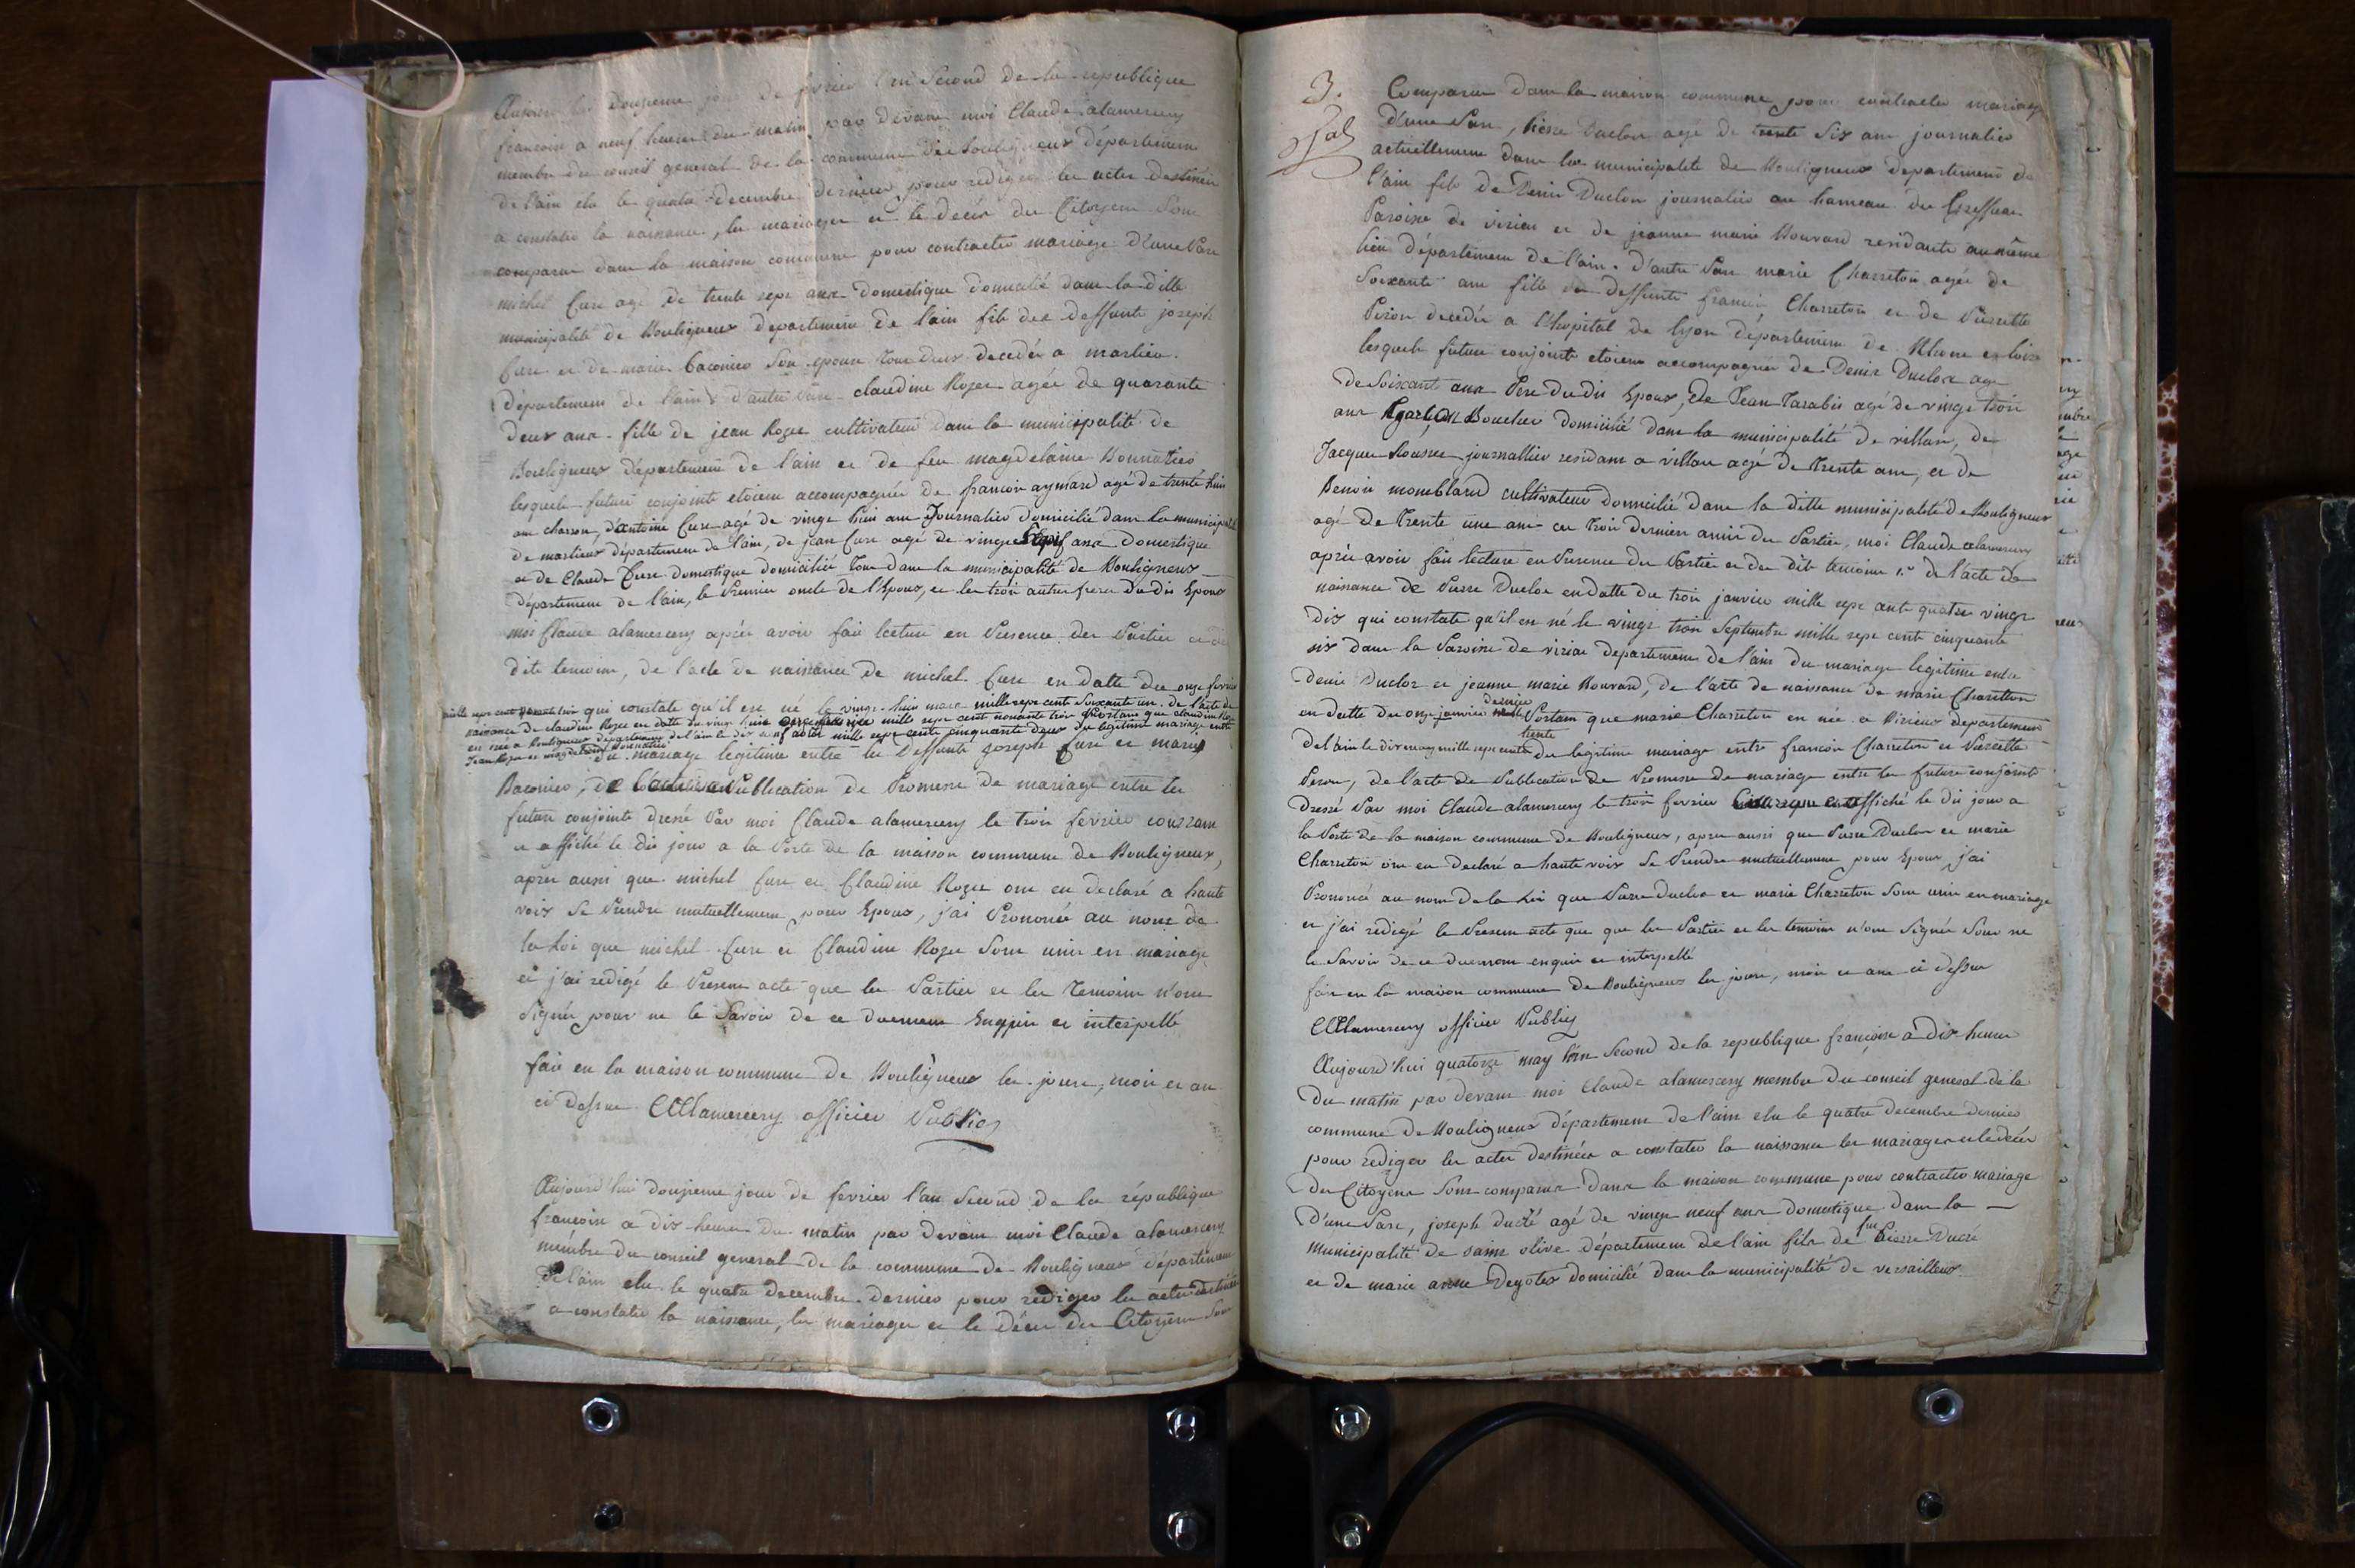 Aujourd'hui Douzieme jour de fevrier l'an Second de la republique
francoise a neuf heures du matin, par devant moi Claude alamercery
membre du conseil general de la commune de Bouligneux département
de l'ain elu le quatre decembre dernier pour rediger les actes destinées
a constater la naissance, les mariages et le decès des Citoyens Sont
comparus dans la maison commune pour contracter mariage D'une Part
michel Cure agé de trente sept ans Domestique domicilié dans la ditte
municipalité de Bouligneux departement de l'ain fils des deffunts joseph
Cure et de marie Baconier Son epouse tous deux decedés a marlieu
département de l'ain, d'autre Part claudine Rozee agée de quarante
deux ans fille de jean Rozee cultivateur dans la municipalité de
Bouligneux département de l'ain et de feu magdelaine Bonnatier
lesquels futurs conjoints etoient accompagnés de francois aymard agé de trente huit
ans charron, d'antoine Cure agé de vingt huit ans Journalier domicilié dans la municipalité
de marlieux département de l'ain, de jean Cure agé de vingt ans Domestique
et de Claude Cure Domestique domiciliés Tous dans la municipalité de Bouligneux
département de l'ain, le Premier oncle de l'Epoux, et les trois autres freres du dit Epoux
moi Claude alamercery après avoir fait lecture en Presence des Parties et des
dits temoins, de l'acte de naissance de michel Cure en datte du onze fevrier
mille sept cent qui constate qu'il est né le vingt huit mars mille sept cent Soixante un. de l'acte de
naissance de claudine Rozee en datte du vingt huit mille sept cent nonante trois Portant que claudine Rozee
est née a Bouligneux département de l'ain le dix neuf aout mille sept cent cinquante deux du legitime mariage entre
Jean Rozee et magdelaine Bonnatier
du mariage legitime entre les Deffunts Joseph Cure et marie
Baconier, de Publication de Promesse de mariage entre les
futurs conjoints dressé Par moi Claude alamercery le trois fevrier courrant
et affiché le dit jour a la Porte de la maison commune de Bouligneux,
après aussi que michel Cure et Claudine Rozee ont eu declaré a haute
voix Se Prendre mutuellement pour Epoux, j'ai Prononcé au nom de
la Loi que michel Cure et Claudine Rozee Sont unis en mariage
et j'ai redigé le Present acte que les Parties et les Temoins n'ont
Signés pour ne le Savoir de ce duement Enquis et interpellé
fait en la maison commune de Bouligneux les jours, mois et an
ci dessus CAlamercery officier Public
Aujourd'hui douzieme jour de fevrier l'an Second de la république
francoise a dix heures du matin par devant moi Claude alamercery
membre du conseil general de la commune de Bouligneux département
de l'ain elu le quatre decembre dernier pour rediger les actes destinées
a constater la naissance, les mariages et le décès des Citoyens Sont
3.
Comparus dans la maison commune pour contracter mariage
d'une Part, Pierre Duclos agé de trente Six ans journalier
actuellement dans la municipalité de Bouligneux departement de
l'ain fils de Denis Duclos journalier au hameau du
Paroisse de viriat et de jeanne marie Bouvard residante au même
lieu département de l'ain. D'autre Part marie Charreton agée de
Soixante ans fille de deffunts francois Charreton et de Pierrette
Peron decedée a l'hopital de Lyon département de Rhone et loire
lesquels futurs conjoints etoient accompagnés de Denis Duclos agé
de Soixante ans Pere du dit Epoux, de Jean Tarabis agé de vingt trois
ans garçon Boucher domicilié dans la municipalité de villars, de
Jacques Rousset journallier residant a villars agé de Trente ans, et de
Benoit monblard cultivateur domicilié dans la ditte municipalité de Bouligneux
agé de Trente une ans ces Trois derniers amis des Parties, moi Claude alamercery
après avoir fait lecture en Presence des Parties et des dits temoins 1.° de l'acte de
naissance de Pierre Duclos en datte du trois janvier mille sept cents quatre vingt
dix qui constate qu'il est né le vingt trois Septembre mille sept cents cinquante
six dans la Paroisse de viriat departement de l'ain du mariage legitime entre
Denis Duclos et jeanne marie Bouvard, de l'acte de naissance de marie Charreton
en datte du onze janvier dernier Portant que marie Charreton est née a Birieux departement
de l'ain le dix may mille sept cents trente du legitime mariage entre francois Charreton et Pierrette
Peron, de l'acte de Publication de Promesse de mariage entre les futurs conjoints
Dressé Par moi Claude alamercery le trois fevrier affiché le dit jour a
la Porte de la maison commune de Bouligneux, après aussi que Pierre Duclos et marie
Charreton ont eu Declaré a haute voix Se Prendre mutuellement pour Epoux, j'ai
Prononcé au nom de la Loi que Pierre Duclos et marie Charreton Sont unis en mariage
et j'ai redigé le Present acte que que les Parties et les temoins n'ont Signés Pour ne
le Savoir de ce duement enquis et interpellé
fait en la maison commune de Bouligneux les jours, mois et ans ci dessus
CAlamercery officier Public
Aujourd'hui quatorze may l'an Second de la republique françoise à dix heures
Du matin par devant moi Claude alamercery membre du conseil general de la
commune de Bouligneux département de l'ain elu le quatre decembre dernier
pour rediger les actes destinées a constater la naissance les mariages et le décès
des Citoyens Sont comparus dans la maison commune pour contracter mariage
D'une Part, joseph Ducré agé de vingt neuf ans domestique dans la
municipalité de saint olive département de l'ain fils de feu Pierre Ducré
et de marie anne Degotes domicilié dans la municipalité de versailleux